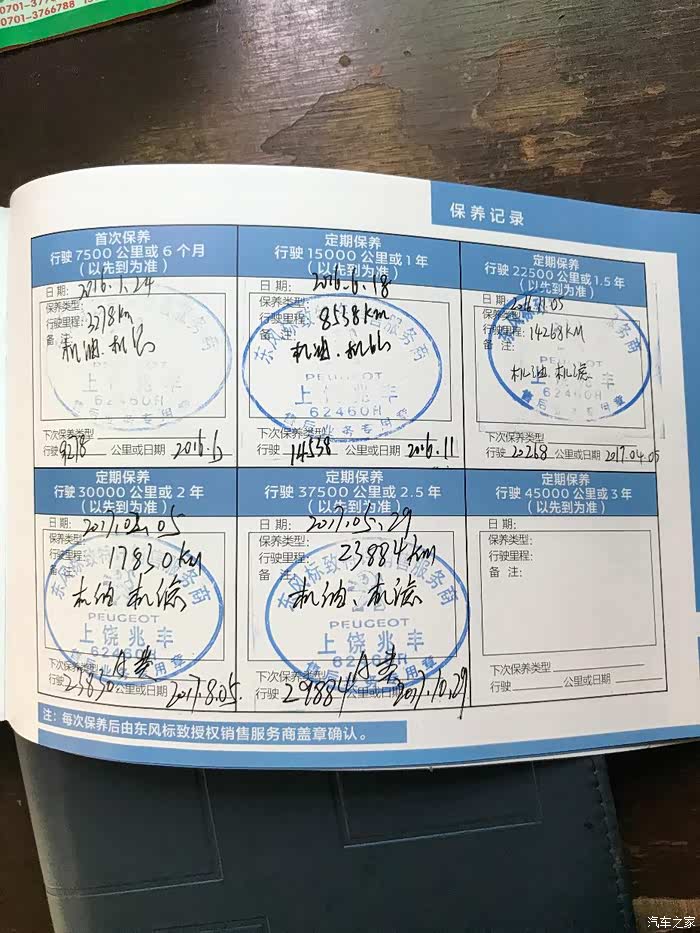 0701-3766788
保养记录
首次保养
行驶 7500 公里或 6 个月
（以先到为准）
日 期： 2016.1.24
保养类型：
行驶里程： 3278km
备 注：
机油、机沁
PEUGEOT
上饶兆丰
62460H
售后业务专用章
下次保养类型
行驶 9278 公里或日期 2016.6
定期保养
行驶 15000 公里或 1 年
（以先到为准）
日 期： 2016.6.18
保养类型：
行驶里程： 8538km
备 注：
机油、机沁
PEUGEOT
上饶兆丰
62460H
售后业务专用章
下次保养类型
行驶 14538 公里或日期 2016.11
定期保养
行驶 22500 公里或 1.5 年
（以先到为准）
日 期：
保养类型：
行驶里程： 14268KM
备 注：
机油、机滤
PEUGEOT
上饶兆丰
62460H
售后业务专用章
下次保养类型
行驶 20268 公里或日期 2017.04.05
定期保养
行驶 30000 公里或 2 年
（以先到为准）
日 期： 2017.02.05
保养类型：
行驶里程： 17830km
备 注：
机油、机滤
PEUGEOT
上饶兆丰
62460H
下次保养类型
行驶 23830 公里或日期 2017.8.05.
定期保养
行驶 37500 公里或 2.5 年
（以先到为准）
日 期： 2017.05.29
保养类型：
行驶里程： 23884km
备 注：
机油、机滤
PEUGEOT
上饶兆丰
62460H
下次保养类型
行驶 29884 公里或日期 2017.10.29
定期保养
行驶 45000 公里或 3 年
（以先到为准）
日 期：
保养类型：
行驶里程：
备 注：
下次保养类型
行驶 公里或日期
注：每次保养后由东风标致授权销售服务商盖章确认。
汽车之家